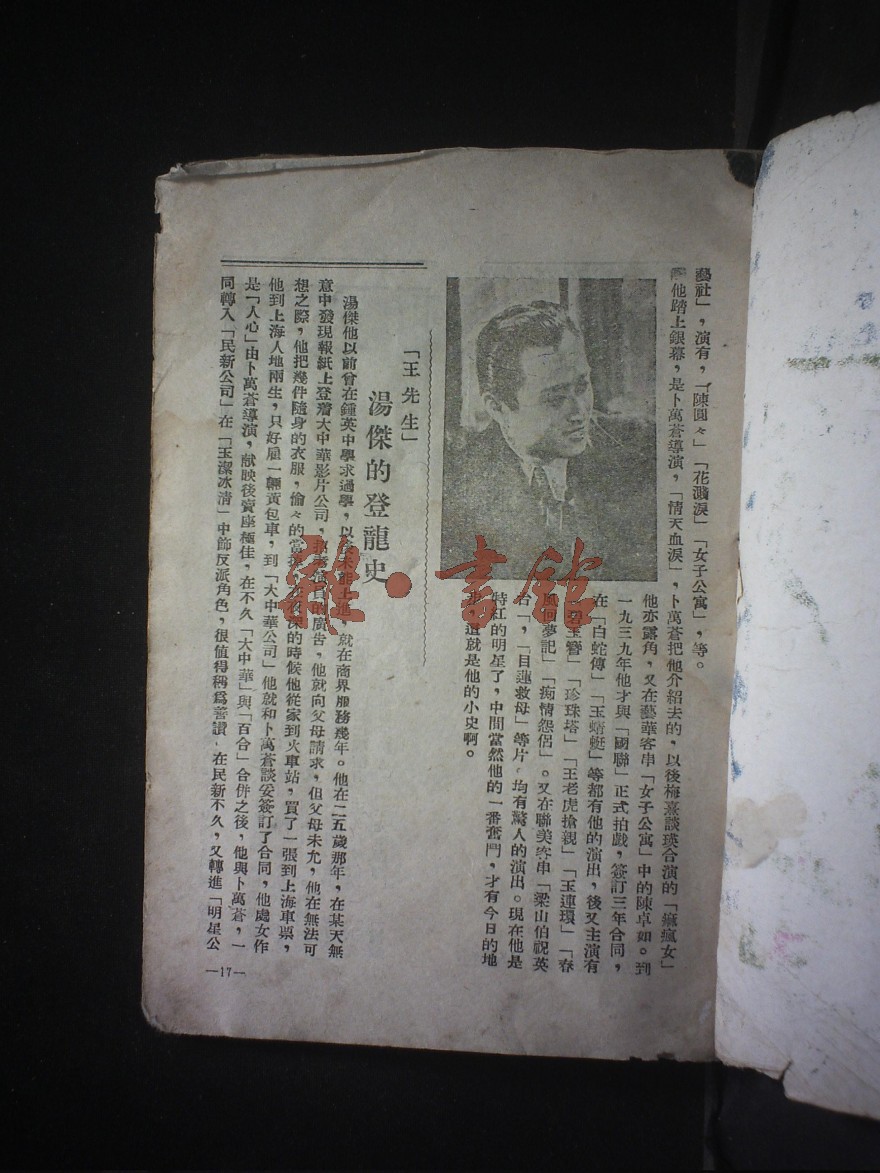 藝社」，演有，「陳圓々」「花濺淚」「女子公寓」，等。
他踏上銀幕，是卜萬蒼導演，「情天血淚」，卜萬蒼把他介紹去的，以後梅熹談瑛合演的「痲瘋女」
他亦露角，又在藝華客串「女子公寓」中的陳卓如。到
一九三九年他才與「國聯」正式拍戲，簽訂三年合同，
在「白蛇傳」「玉蜻蜓」等都有他的演出，後又主演有
碧玉簪」「珍珠塔」「王老虎搶親」「玉連環」「春
風回夢記」「痴情怨侶」。又在聯美客串「梁山伯祝英
台」，「目蓮救母」等片，均有驚人的演出。現在他是
特紅的明星了，中間當然他的一番奮鬥，才有今日的地
這就是他的小史啊。
「王先生」
湯傑的登龍史
湯傑他以前曾在鍾英中學求過學，以後未能上進，就在商界服務幾年。他在二五歲那年，在某天無
意中發現報紙上登着大中華影片公司，招考演員的廣告，他就向父母請求，但父母未允，他在無法可
想之際，他把幾件隨身的衣服，偷々的當掉，在夜深的時候他從家到火車站，買了一張到上海車票，
他到上海人地兩生，只好雇一輛黃包車，到「大中華公司」他就和卜萬蒼談妥簽訂了合同，他處女作
是「人心」由卜萬蒼導演，献映後賣座極佳，在不久「大中華」與「百合」合併之後，他與卜萬蒼，一
同轉入「民新公司」在「玉潔冰清」中飾反派角色，很值得稱爲善讚，在民新不久，又轉進「明星公
—17—
雅·書館